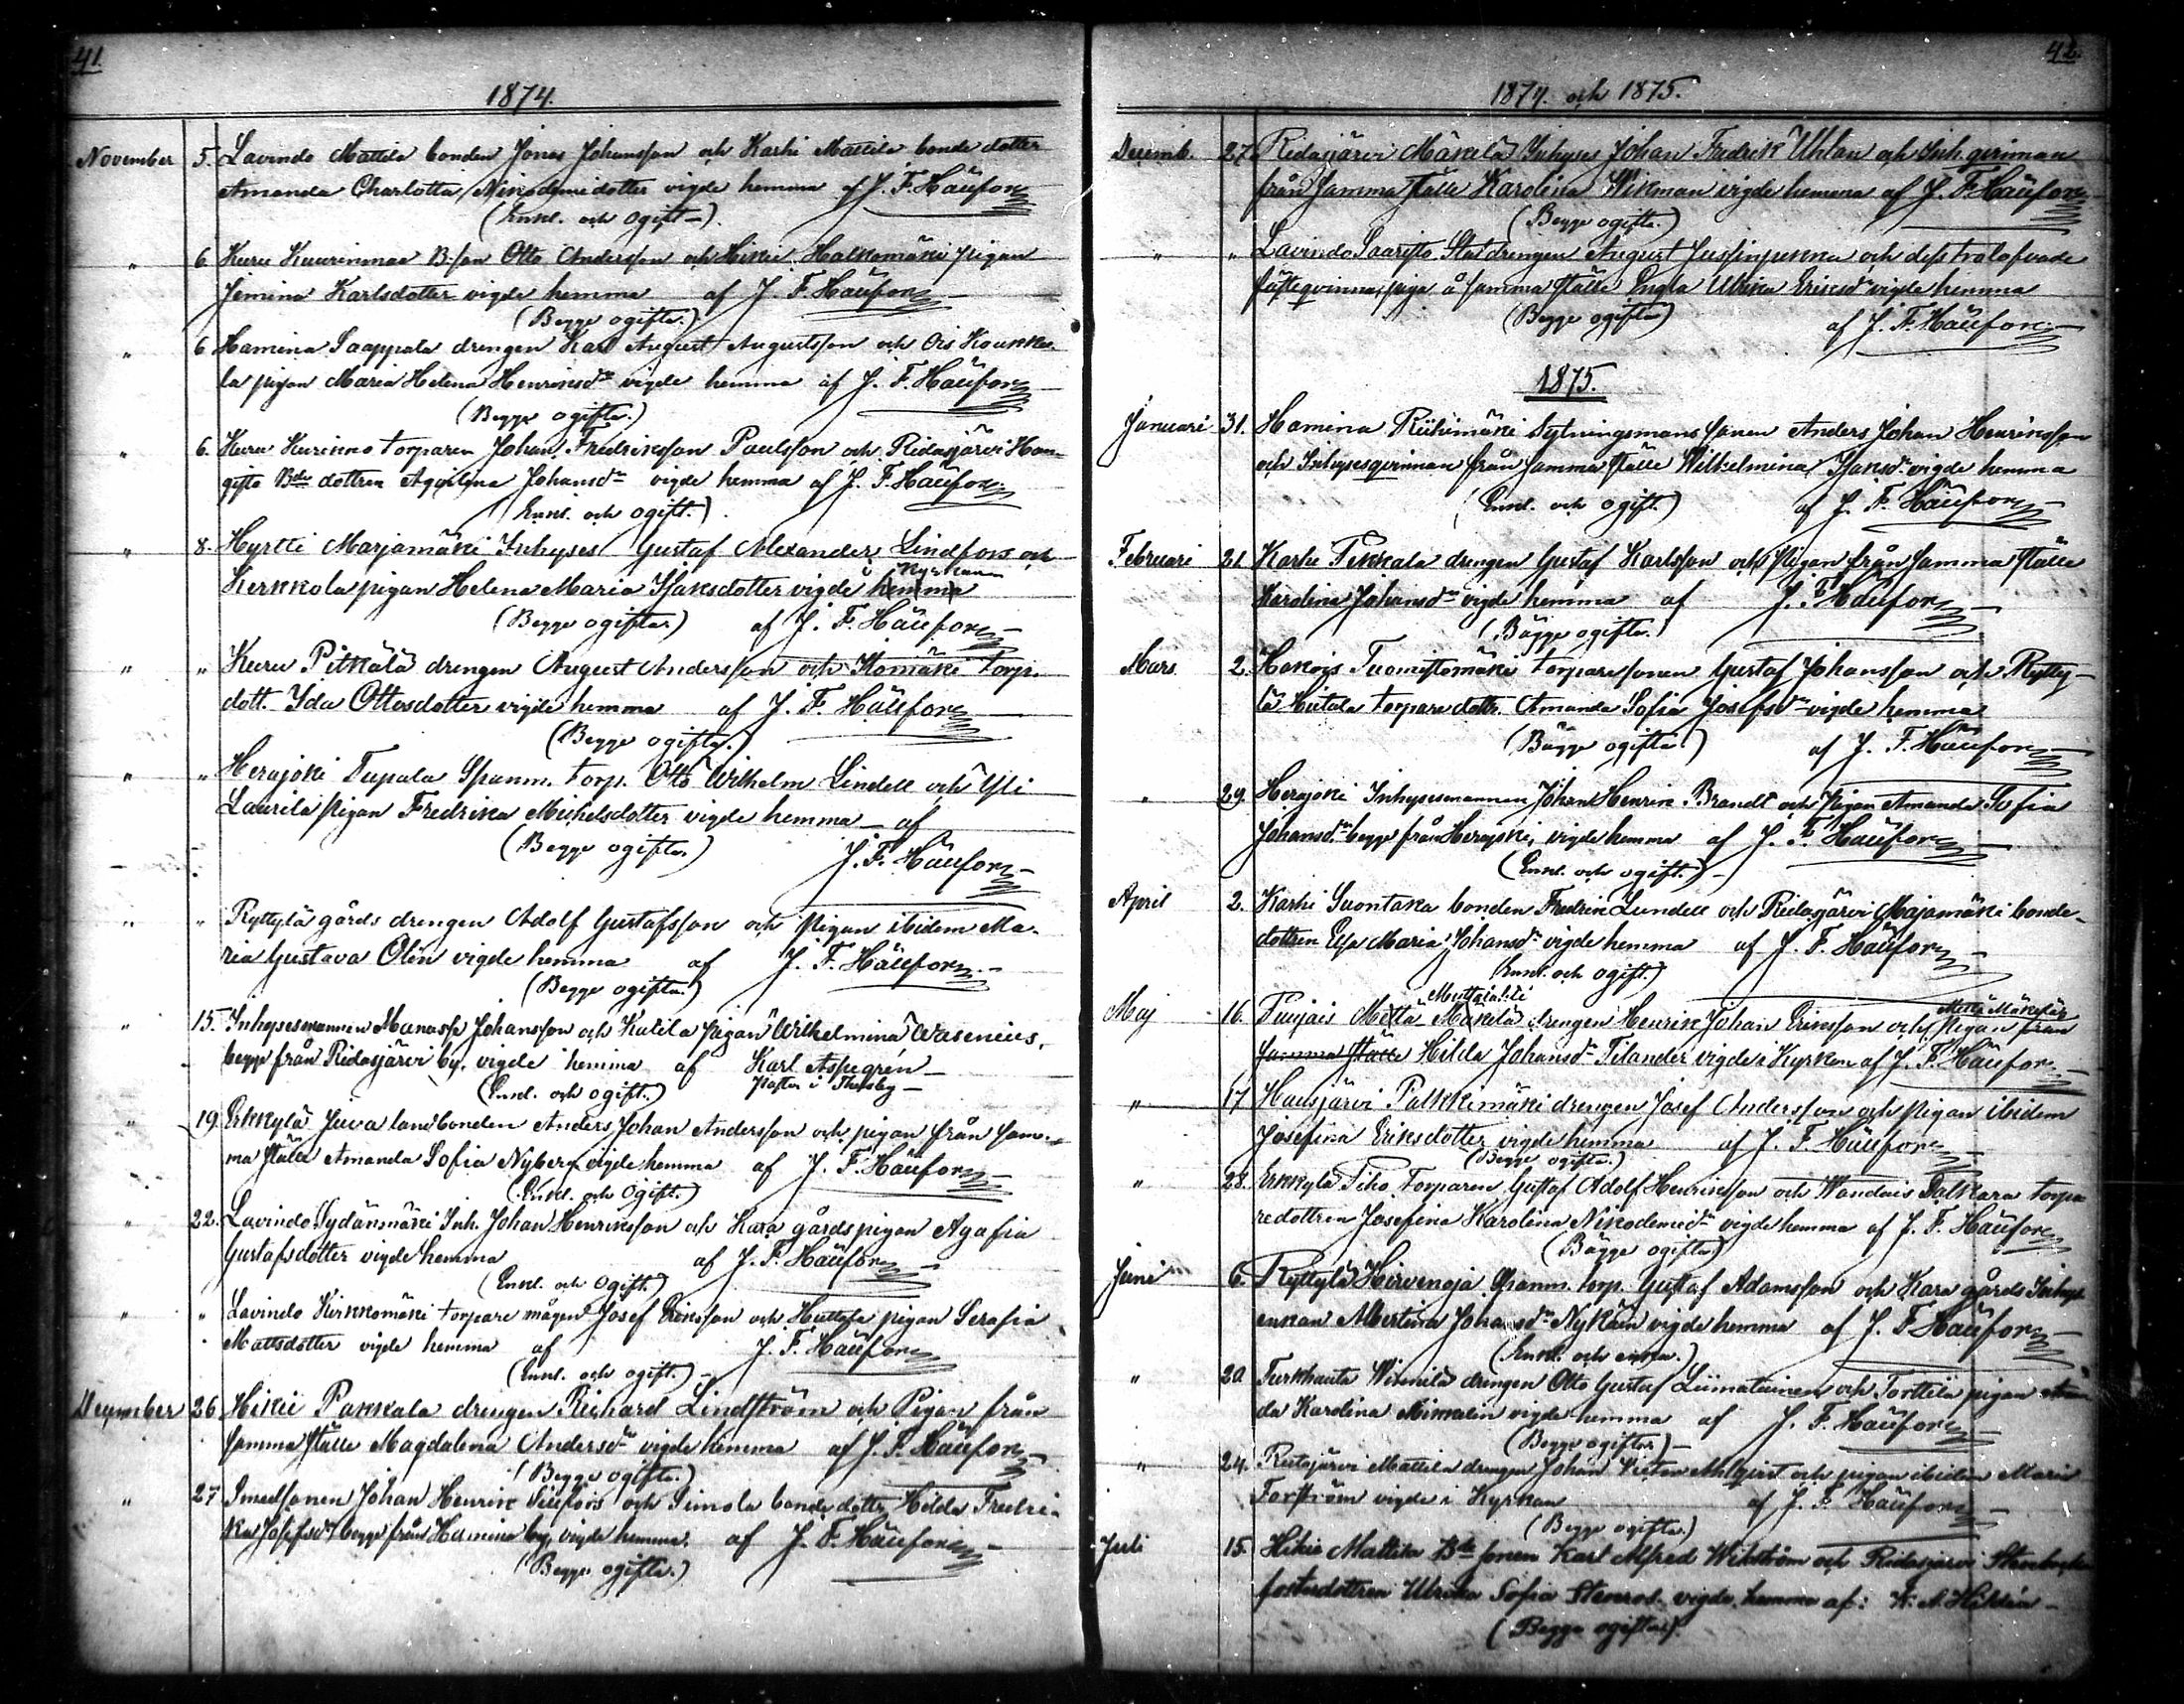 41.
1874.
November 5. Lavindo Mattila bonden Jonas Johansson och Karhi Mattila bonde dotter
Amanda Charlotta Nikodemidotter vigde hemma af J. F. Häufors
(Enkl. och ogift.)
" 6. Kuru Kuurinmaa B.son Otto Andersson och Hikiä Halkomäki pigan
Jemina Karlsdotter vigde hemma af J. F. Häufors
(Begge ogifta.)
" 6 Hamina Saappala drengen Karl August Augustsson och Ois Koukku-
la pigan Maria Helena Henriksdr vigde hemma af J. F. Häufors
(Begge ogifta.)
" 6. Kuru Kurinno torparen Johan Fredriksson Paulsson och Ridasjärvi
Bde dottren Aqvilina Johansdr vigde hemma af J. F. Häufors
(Enkl. och ogift.)
" 8. Hyrtti Marjamäki Inhyses Gustaf Alexander Lindfors och
i Kyrkan
Kerkkola pigan Helena Maria Isaksdotter vigde hemma
(Begge ogifta) af J. F. Häufors
" " Kuru Pitkälä drengen August Andersson och Komäki torp.
dott. Ida Ottosdotter vigde hemma af J. F. Häufors
(Begge ogifta.)
" " Herajoki Tupala Spanm. torp. Otto Wilhelm Lindell och Yli
Laurila pigan Fredrika Michelsdotter vigde hemma af
(Begge ogifta.) J. F. Häufors
" " Ryttylä gårds drengen Adolf Gustafsson och pigan ibidem Ma-
ria Gustava Olin vigde hemma af J. F. Häufors
(Begge ogifta.)
" 15. Inhysesmannen Manasse Johansson och Katila pigan Wilhelmina Wasenius,
begge från Ridasjärvi by, vigde hemma af Karl Aspegrén
(Enkl. och ogift.) Pastor i Thusby
" 19. Erkkylä Juva landbonden Anders Johan Andersson och pigan från sam-
ma ställe Amanda Sofia Nyberg vigde hemma af J. F. Häufors
(Enkl. och Ogift.)
" 22. Lavindo Sydänmäki Inh. Johan Henriksson och Kara gårds pigan Agafia
Gustafsdotter vigde hemma af J. F. Häufors
(Enkl. och Ogift.)
" " Lavindo Kirkkomäki torpare mågen Josef Eriksson och pigan Serafia
Mattsdotter vigde hemma af J. F. Häufors
(Enkl. och ogift.)
December 26 Hikiä Pakkala drengen Richard Lindström och Pigan från
samma ställe Magdalena Andersdr vigde hemma af J. F. Häufors
(Begge ogifta.)
" 27 Smedsonen Johan Henrik och Simola bonde dotter Hilda Fredri-
ka Josefsdr begge från Hamina by, vigde hemma af J. F. Häufors
(Begge ogifta.)
42.
1874. och 1875.
Decemb. 27. Ridasjärvi Mäkelä Inhyses Johan Fredrik Uhlan och Inh. qvinnan
från samma ställe Karolina Wikman vigde hemma af J. F. Häufors
(Begge ogifta.)
" " Lavindo Saaristo Statdrengen August Jussinpekka och dess trolofvade
fästeqvinna, piga å samma ställe Engla Ulrika Eriksdr vigde hemma
(Begge ogifta) af J. F. Häufors
1875.
Januari 31. Hamina Riihimäki Sytningsmans sonen Anders Johan Henriksson
och Inhysesqvinnan från samma ställe Wilhelmina Isaksdr vigde hemma
(Enkl. och ogift.) af J. F. Häufors
Februari 21 Karhi Pekkala drengen Gustaf Karlsson och Pigan från samma ställe
Karolina Johansdr vigde hemma af J. F. Häufors
(Bägge ogifta.)
Mars 2. Hakois Tuomistomäki torparesonen Gustaf Johansson och Rytty-
lä Hietala torparedottr. Amanda Sofia Josefsdr vigde hemma
(Bägge ogifta.) af J. F. Häufors
" 29. Herajoki Inhysesmannen Johan Henrik Brandt och Pigan Amanda Sofia
Johansdr begge från Herajoki, vigde hemma af J. F. Häufors
(Enkl. och ogift.)
April 2. Karhi Suontaka bonden Fredrik Lundell och Ridasjärvi Majamäki bonde-
dottren Eva Maria Johansdr vigde hemma af J. F. Häufors
(Enkl. och ogift.)
Maj 16. Mäkelä drengen Henrik Johan Eriksson och Pigan från
samma ställe Hilda Johansdr Tilander vigde i Kyrkan af J. F. Häufors
" 17 Hausjärvi Palkkimäki drengen Josef Andersson och pigan ibidem
Josefina Eriksdotter vigde hemma af J. F. Häufors
(Begge ogifta.)
" 28. Erkkylä Piho Torparen Gustaf Adolf Henriksson och Wandais torpa
redottren Josefina Karolina Nikodemidr vigde hemma af J. F. Häufors
(Bägge ogifta)
Juni 6. Ryttylä Hirvenoja Spanm. torp. Gustaf Adamsson och Kara gårds Inhyses
enkan Albertina Johansdr Nykän vigde hemma af J. F. Häufors
(Enkl. och enka.)
" 20. Turkhauta drengen Otto Gustaf Liimatainen och Torttila pigan
da Karolina vigde hemma af J. F. Häufors
(Begge ogifta)
" 24. Ridasjärvi Mattila drengen Johan Victor Ahlqvist och pigan ibidem Maria
Forsström vigde i Kyrkan af J. F. Häufors
(Begge ogifta.)
Juli 15. Hikiä Mattila Bde sonen Karl Alfred Wikström och Ridasjärvi
fosterdottren Ulrika Sofia Stenros vigde hemma af:
(Begge ogifta).